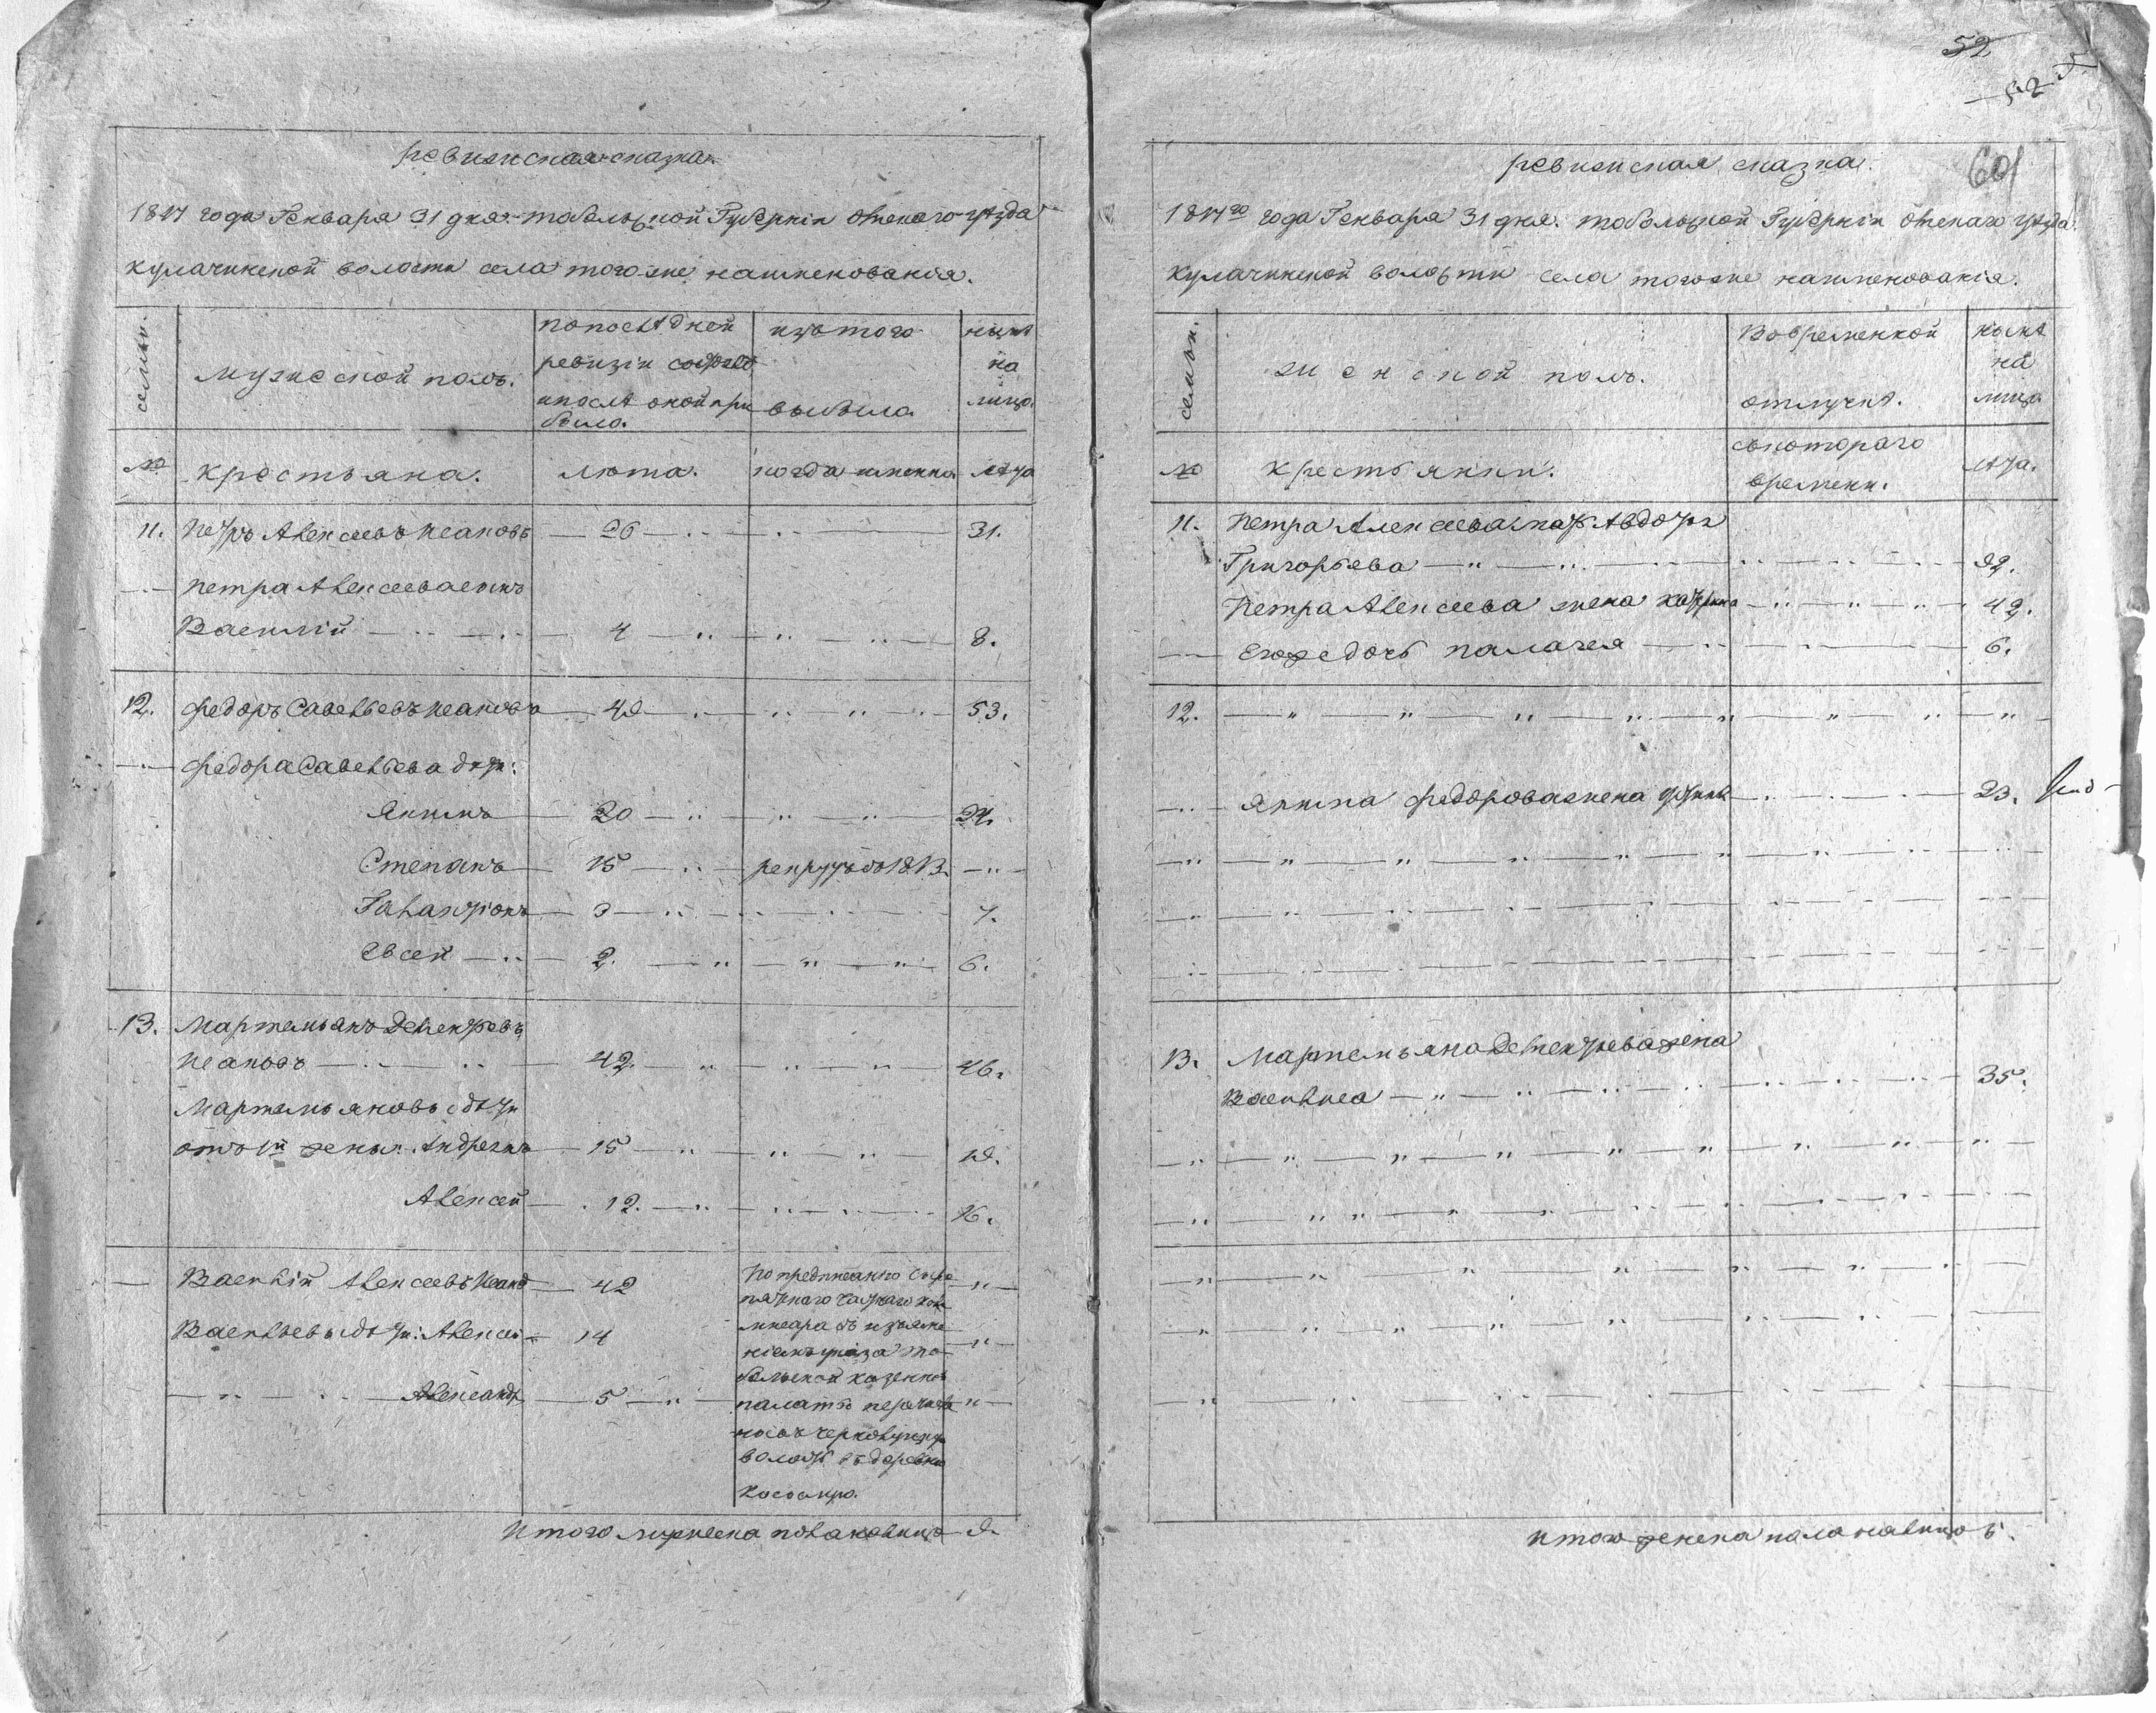 ревизская сказка.
1817 года Генваря 31 дня тобольской Губернiи омскаго уѣзда
кулачинской волости села тогоже наименованiя.
семьи.
мужеской полъ.
попослѣдней
ревизiи состояло
ипослѣ оной при
было.
изътого
выбыло
нынѣ
на
лицо.
№
крестьяна.
лѣта.
когда имянно
лѣта
11. Петръ Алексеевъ Исаковъ 26 31.
Петра Алексеева сынъ
Василiй 4 8.
12. Федоръ Савельевъ Исаковъ 49 53.
Федора Савельева дѣти:
Якимъ 20 24.
Степанъ 15 рекрутъ въ 1813.
Галактiонъ 3 7.
Евсей 2. 6.
13. Мартемьянъ Дементьевъ
Исаковъ 42 46.
Мартемьяновы дѣти
отъ 1й жены Андреянъ 15 19.
Алексей 12. 16.
Василiй Алексеевъ Исаков 42
Васильевы дѣти: Алексей 14
Александр 5
По предписанiю
коми
сара съ изъясне
нiемъ указа то
больской казенной
палаты перечисле
волость въ деревню
Итого мужеска пола налицо 9.
52
60
ревизская сказка.
1817го года Генваря 31 дня. тобольской Губернiи омскаго уѣзда
Кулачинской волости села тогоже наименованiя.
семьи.
женской полъ.
Вовременной
отлучкѣ.
нынѣ
на
лицо
№
крестьянки.
съкотораго
времени.
лѣта.
11. Петра Алексеева мать Авдотья
Григорьева 92.
Петра Алексеева жена 42.
Егоже дочь палагея 6.
12.
Якима Федорова жена 23.
13. Мартемьяна Дементьева жена
Василиса 35.
Итого женска пола налицо 5.